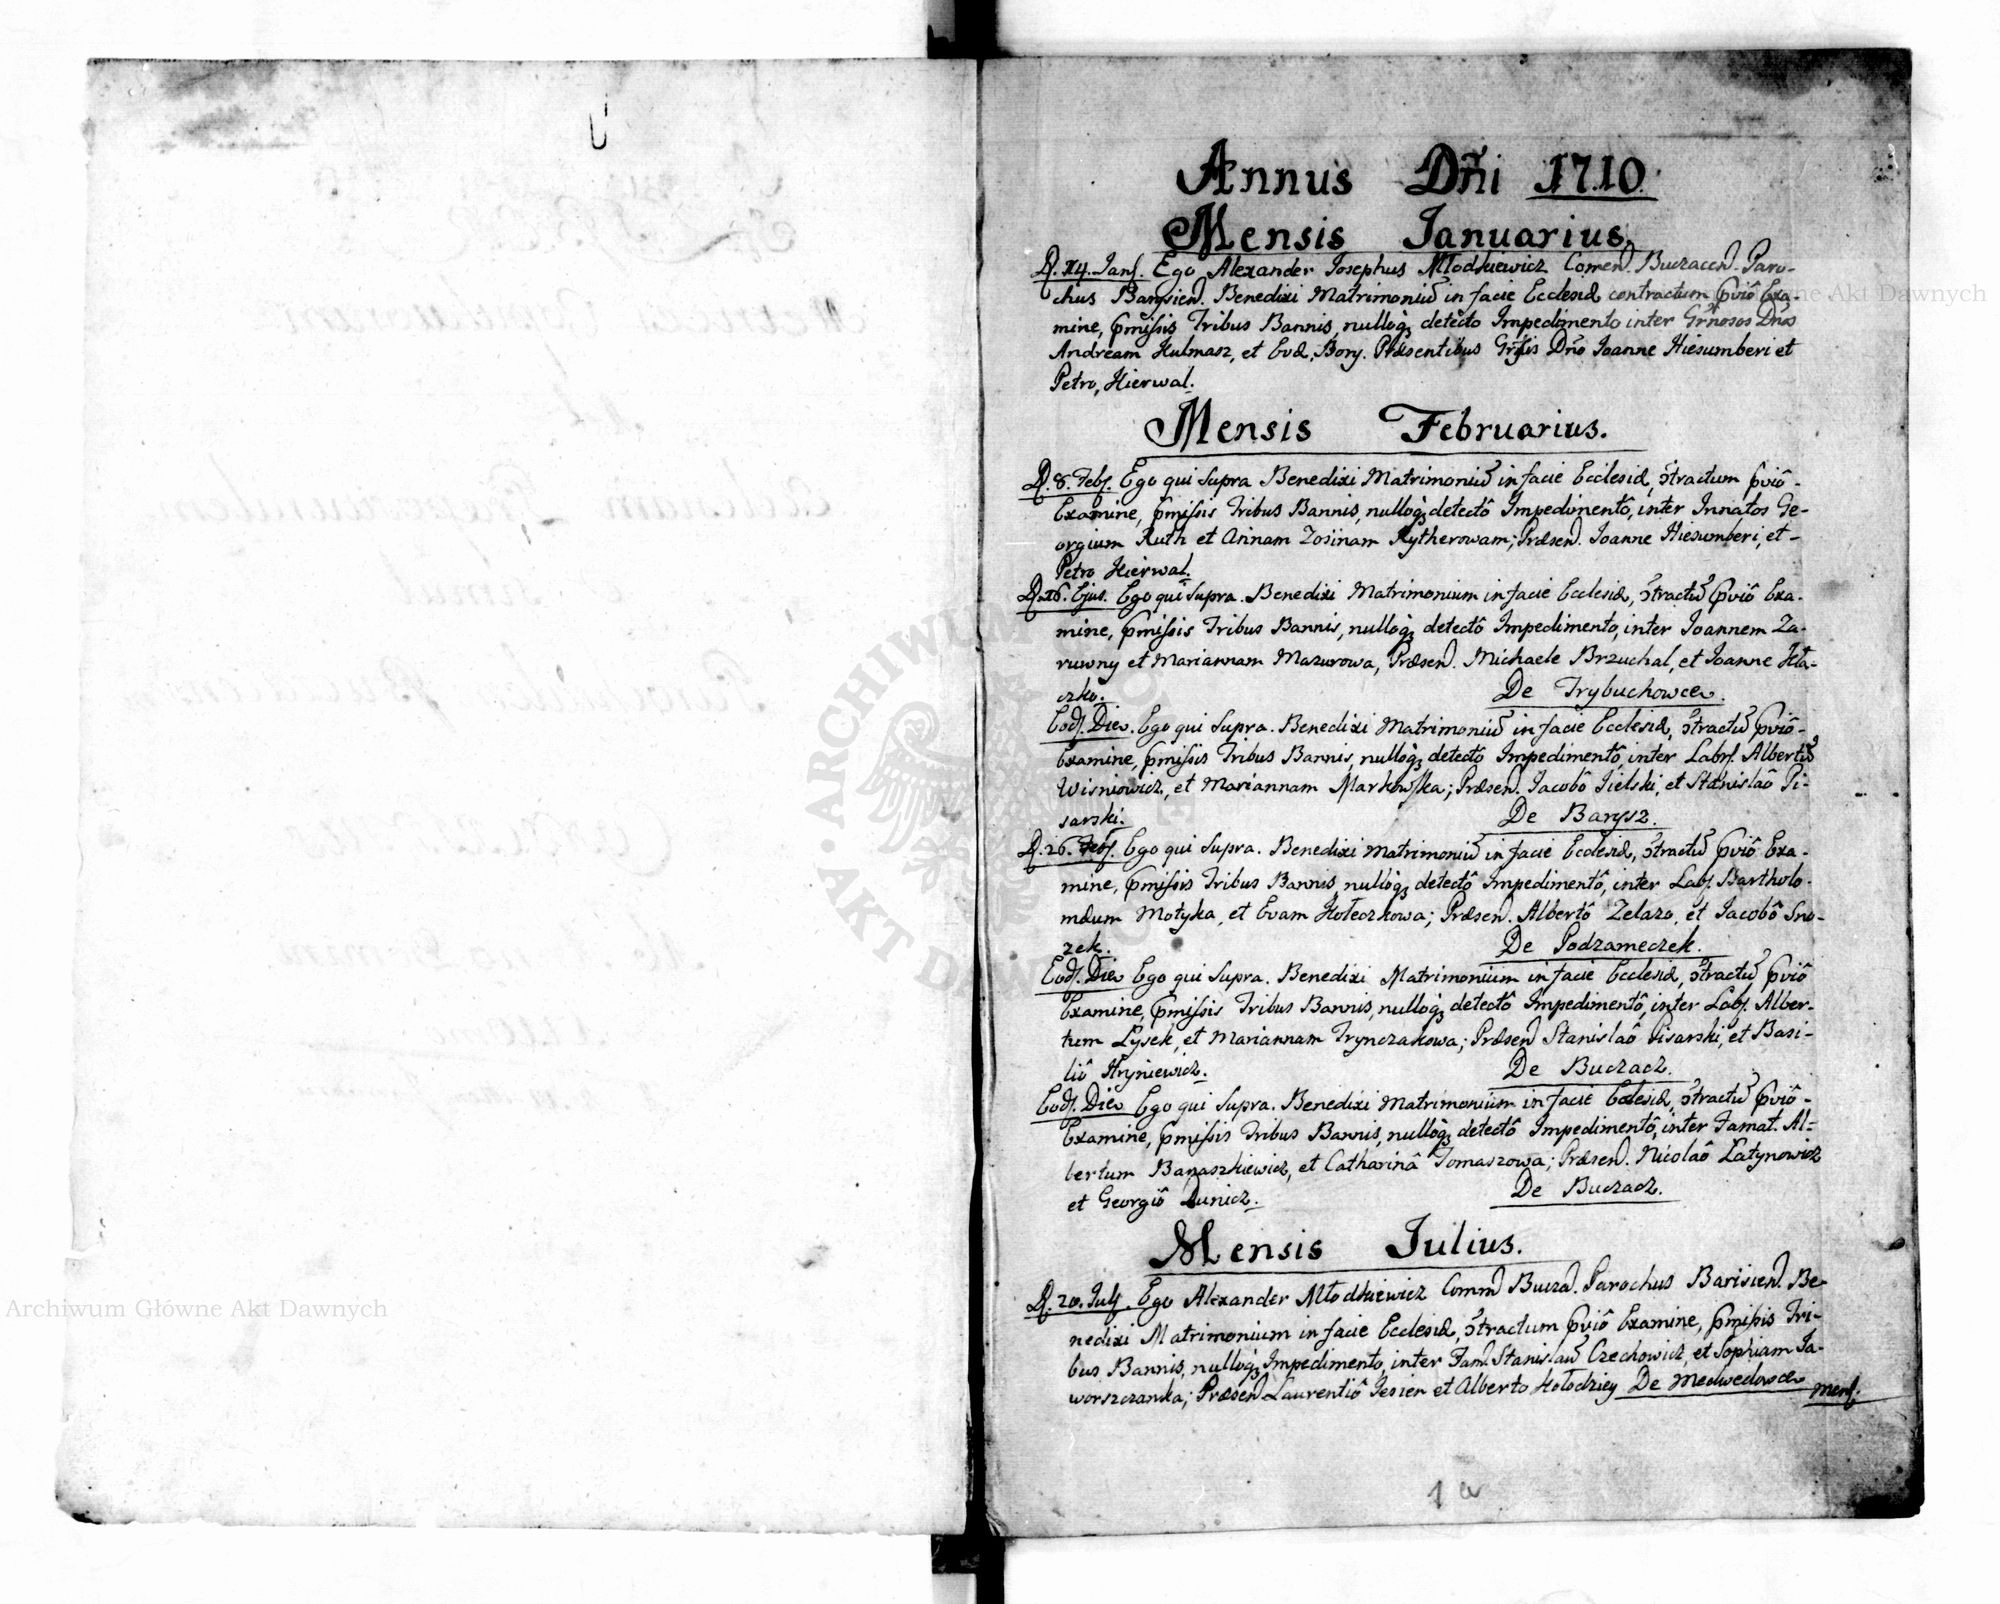 Annus Dñi 1710
Mensis Ianuarius.
D. 14. Janſ. Ego Alexander Iosephus Młodkiewicz Comen. Buczacen. Paro-
chus Barysien. Benedixi Matrimoniu in facie Ecclesiæ contractum pviô Exa-
mine, pmiſsis Tribus Bannis, nulloq; detecto Impedimento inter Grnosos Dños
Andream Hulmasz, et Evæ, Bory. Præsentibus Grſis Dño Ioanne Hiesumberi et
Petro, Hierwal.
Mensis Februarius.
D. 8. Febſ. Ego qui Supra Benedixi Matrimoniu in facie Ecclesiæ, ɔtractum pviô-
Examine, pmiſsis Tribus Bannis, nulloq; detectô Impedimentô, inter Innatos Ge-
orgium Ruth et Annam Zosinam Rytherowam; Præsen. Ioanne Hiesumberi, et-
Petro Hierwal.
D. 16. Ejus. Ego qui Supra. Benedixi Matrimonium in facie Ecclesiæ, ɔtractu pviô Exa-
mine, pmiſsis Tribus Bannis, nulloq; detectô Impedimento, inter Ioannem Za-
ruwny et Mariannam Mazurowa, Præsen. Michaele Brzuchal, et Ioanne Hła-
czko. De Trybuchowce.
Eodſ. Die. Ego qui Supra. Benedixi Matrimoniu in facie Ecclesiæ, ɔtractu pviô-
Examine, pmiſsis Tribus Bannis, nulloq; detectô Impedimentô, inter Labſ. Albertu
Wisniowicz, et Mariannam Markowſka; Præsen. Iacobô Sielski, et Stanislaô Pi-
sarski. De Barysz.
D. 26. Febſ. Ego qui Supra. Benedixi Matrimoniu in facie Ecclesiæ, ɔtractu pviô Exa-
mine, pmiſsis Tribus Bannis, nulloq; detectô Impedimentô, inter Labſ. Bartholo-
mæum Motyka, et Evam Hołeczkowa; Præsen. Albertô Zelazo, et Iacobô Sro-
zek. De Podzameczek.
Eodſ. Die Ego qui Supra. Benedixi Matrimonium in facie Ecclesiæ, ɔtractu pviô
Examine, pmiſsis Tribus Bannis, nulloq; detectô Impedimentô, inter Labſ. Alber-
tum Łysek, et Mariannam Trynczakowa; Præsen Stanislaô Pisarski, et Basi-
liô Hryniewicz. De Buczacz.
Eodſ. Die Ego qui Supra. Benedixi Matrimonium in facie Ecclesiæ, ɔtractu pviô-
Examine, pmiſsis Tribus Bannis, nulloq; detectô Impedimentô, inter Famat. Al-
bertum Banaszkiewicz, et Catharinâ Tomaszowa; Præsen. Nicolaô Łatynowicz
et Georgiô Dunicz. De Buczacz.
Mensis Iulius.
D. 20. Julſ. Ego Alexander Młodkiewicz Comm Bucza. Parochus Barisien. Be-
nedixi Matrimonium in facie Ecclesiæ, ɔtractum pviô Examine, pmiſsis Tri-
bus Bannis, nulloq; Impedimento, inter Fam. Stanislau Czechowicz, et Sophiam Ja-
worszczanka; Præsen Laurentiô Jesien et Alberto Hołodziey De Medwedowce
Menſ.
1a
Archiwum Główne Akt Dawnych
ARCHIWUM GŁÓWNE AKT DAWNYCH